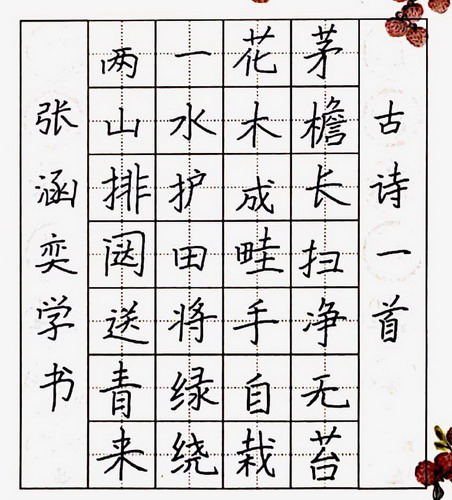 古诗一首
茅檐长扫净无苔
花木成畦手自栽
一水护田将绿绕
两山排闼送青来
张涵奕学书